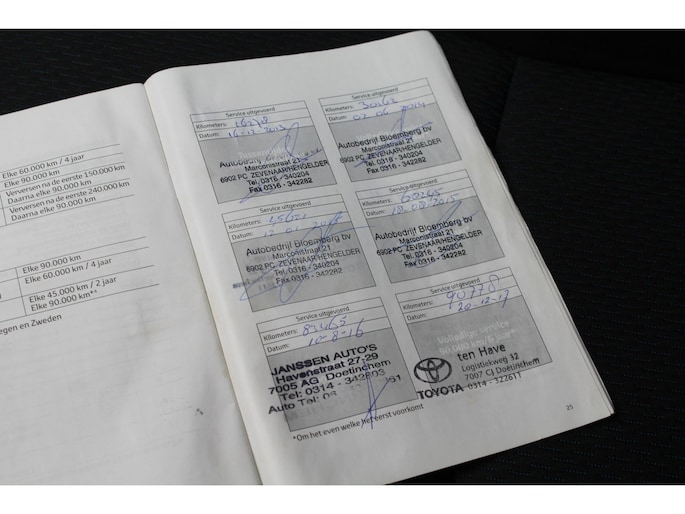 Elke 60.000 km / 4 jaar
Elke 90.000 km
Verversen na de eerste 150.000 km
Daarna elke 90.000 km
Verversen na de eerste 240.000 km
Daarna elke 90.000 km
Elke 90.000 km
Elke 60.000 km / 4 jaar
Elke 45.000 km / 2 jaar
Elke 90.000 km*
egen en Zweden
Service uitgevoerd
Kilometers:
Datum: 16-12-2013
Autobedrijf Bloemberg bv
Marconistraat 21
6902 PC ZEVENAAR/HENGELDER
Tel. 0316 - 340204
Fax 0316 - 342282
Service uitgevoerd
Kilometers:
Datum:
Autobedrijf Bloemberg bv
Marconistraat 21
6902 PC ZEVENAAR/HENGELDER
Tel. 0316 - 340204
Fax 0316 - 342282
Service uitgevoerd
Kilometers:
Datum:
Autobedrijf Bloemberg bv
Marconistraat 21
6902 PC ZEVENAAR/HENGELDER
Tel. 0316 - 340204
Fax 0316 - 342282
Service uitgevoerd
Kilometers: 60265
Datum: 18-08-2015
Autobedrijf Bloemberg bv
Marconistraat 21
6902 PC ZEVENAAR/HENGELDER
Tel. 0316 - 340204
Fax 0316 - 342282
Service uitgevoerd
Kilometers: 82465
Datum: 10-8-16
JANSSEN AUTO'S
Havenstraat 27-29
7005 AG Doetinchem
Tel: 0314 -
Auto Tel: 06
Service uitgevoerd
Kilometers: 90778
Datum: 20-12-17
Volledige service
ten Have
Logistiekweg 32
7007 CJ Doetinchem
TOYOTA 0314 - 322611
*Om het even welke het eerst voorkomt
25